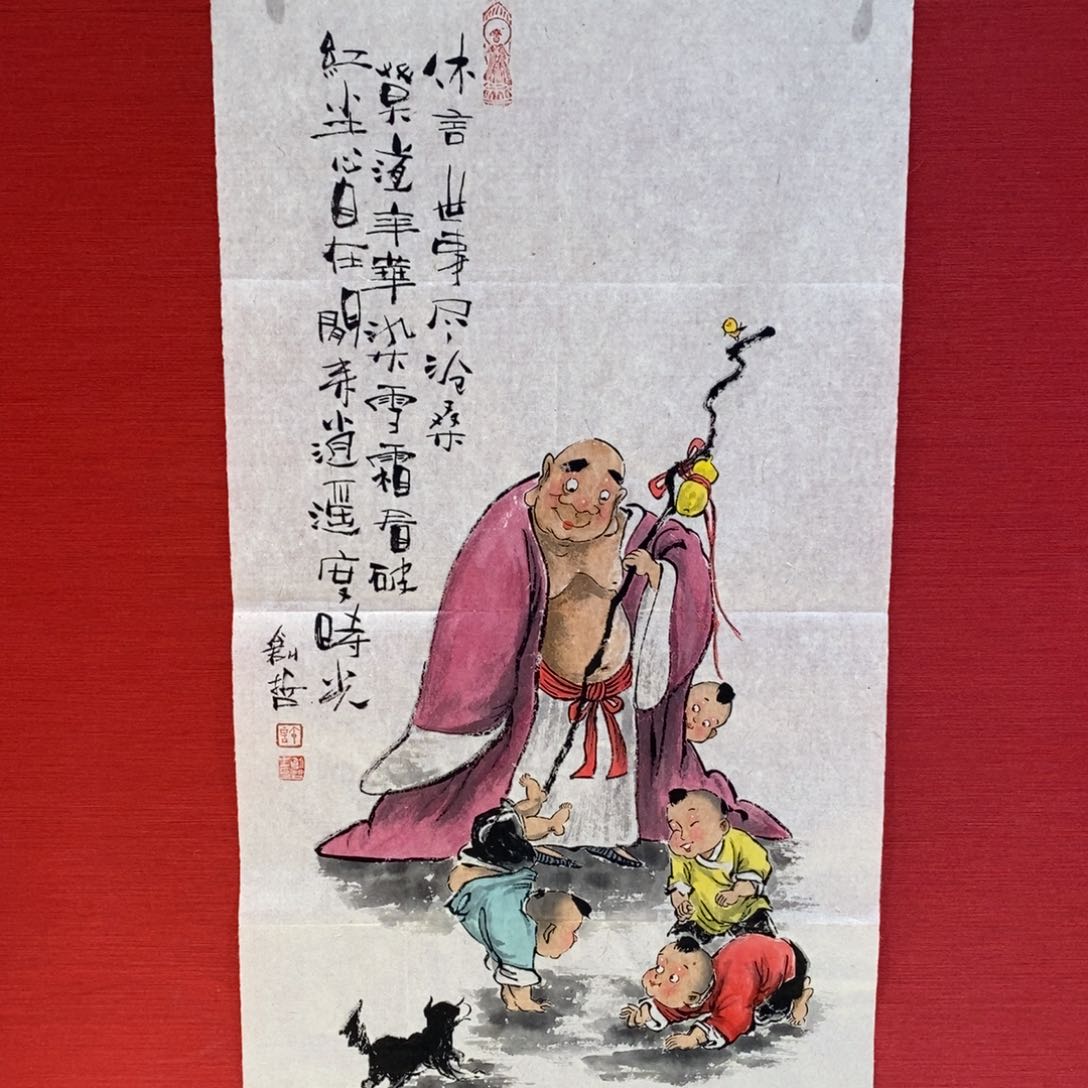 休言世事尽沧桑
莫道年華染雪霜看破
紅尘心自在閒来逍遥度時光
劍哲